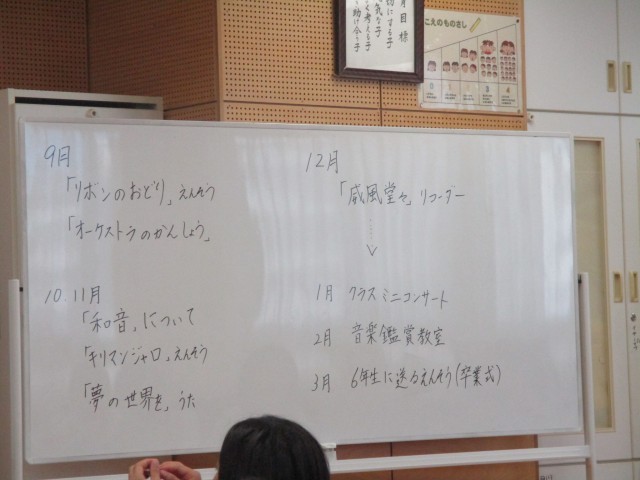 9月
「リボンのおどり」えんそう
「オーケストラのかんしょう」
10.11月
「和音」について
「キリマンジャロ」えんそう
「夢の世界を」うた
12月
「威風堂々」リコーダー
1月 クラスミニコンサート
2月 音楽鑑賞教室
3月 6年生に送るえんそう(卒業式)
月目標
こえのものさし
0 1 2 3 4